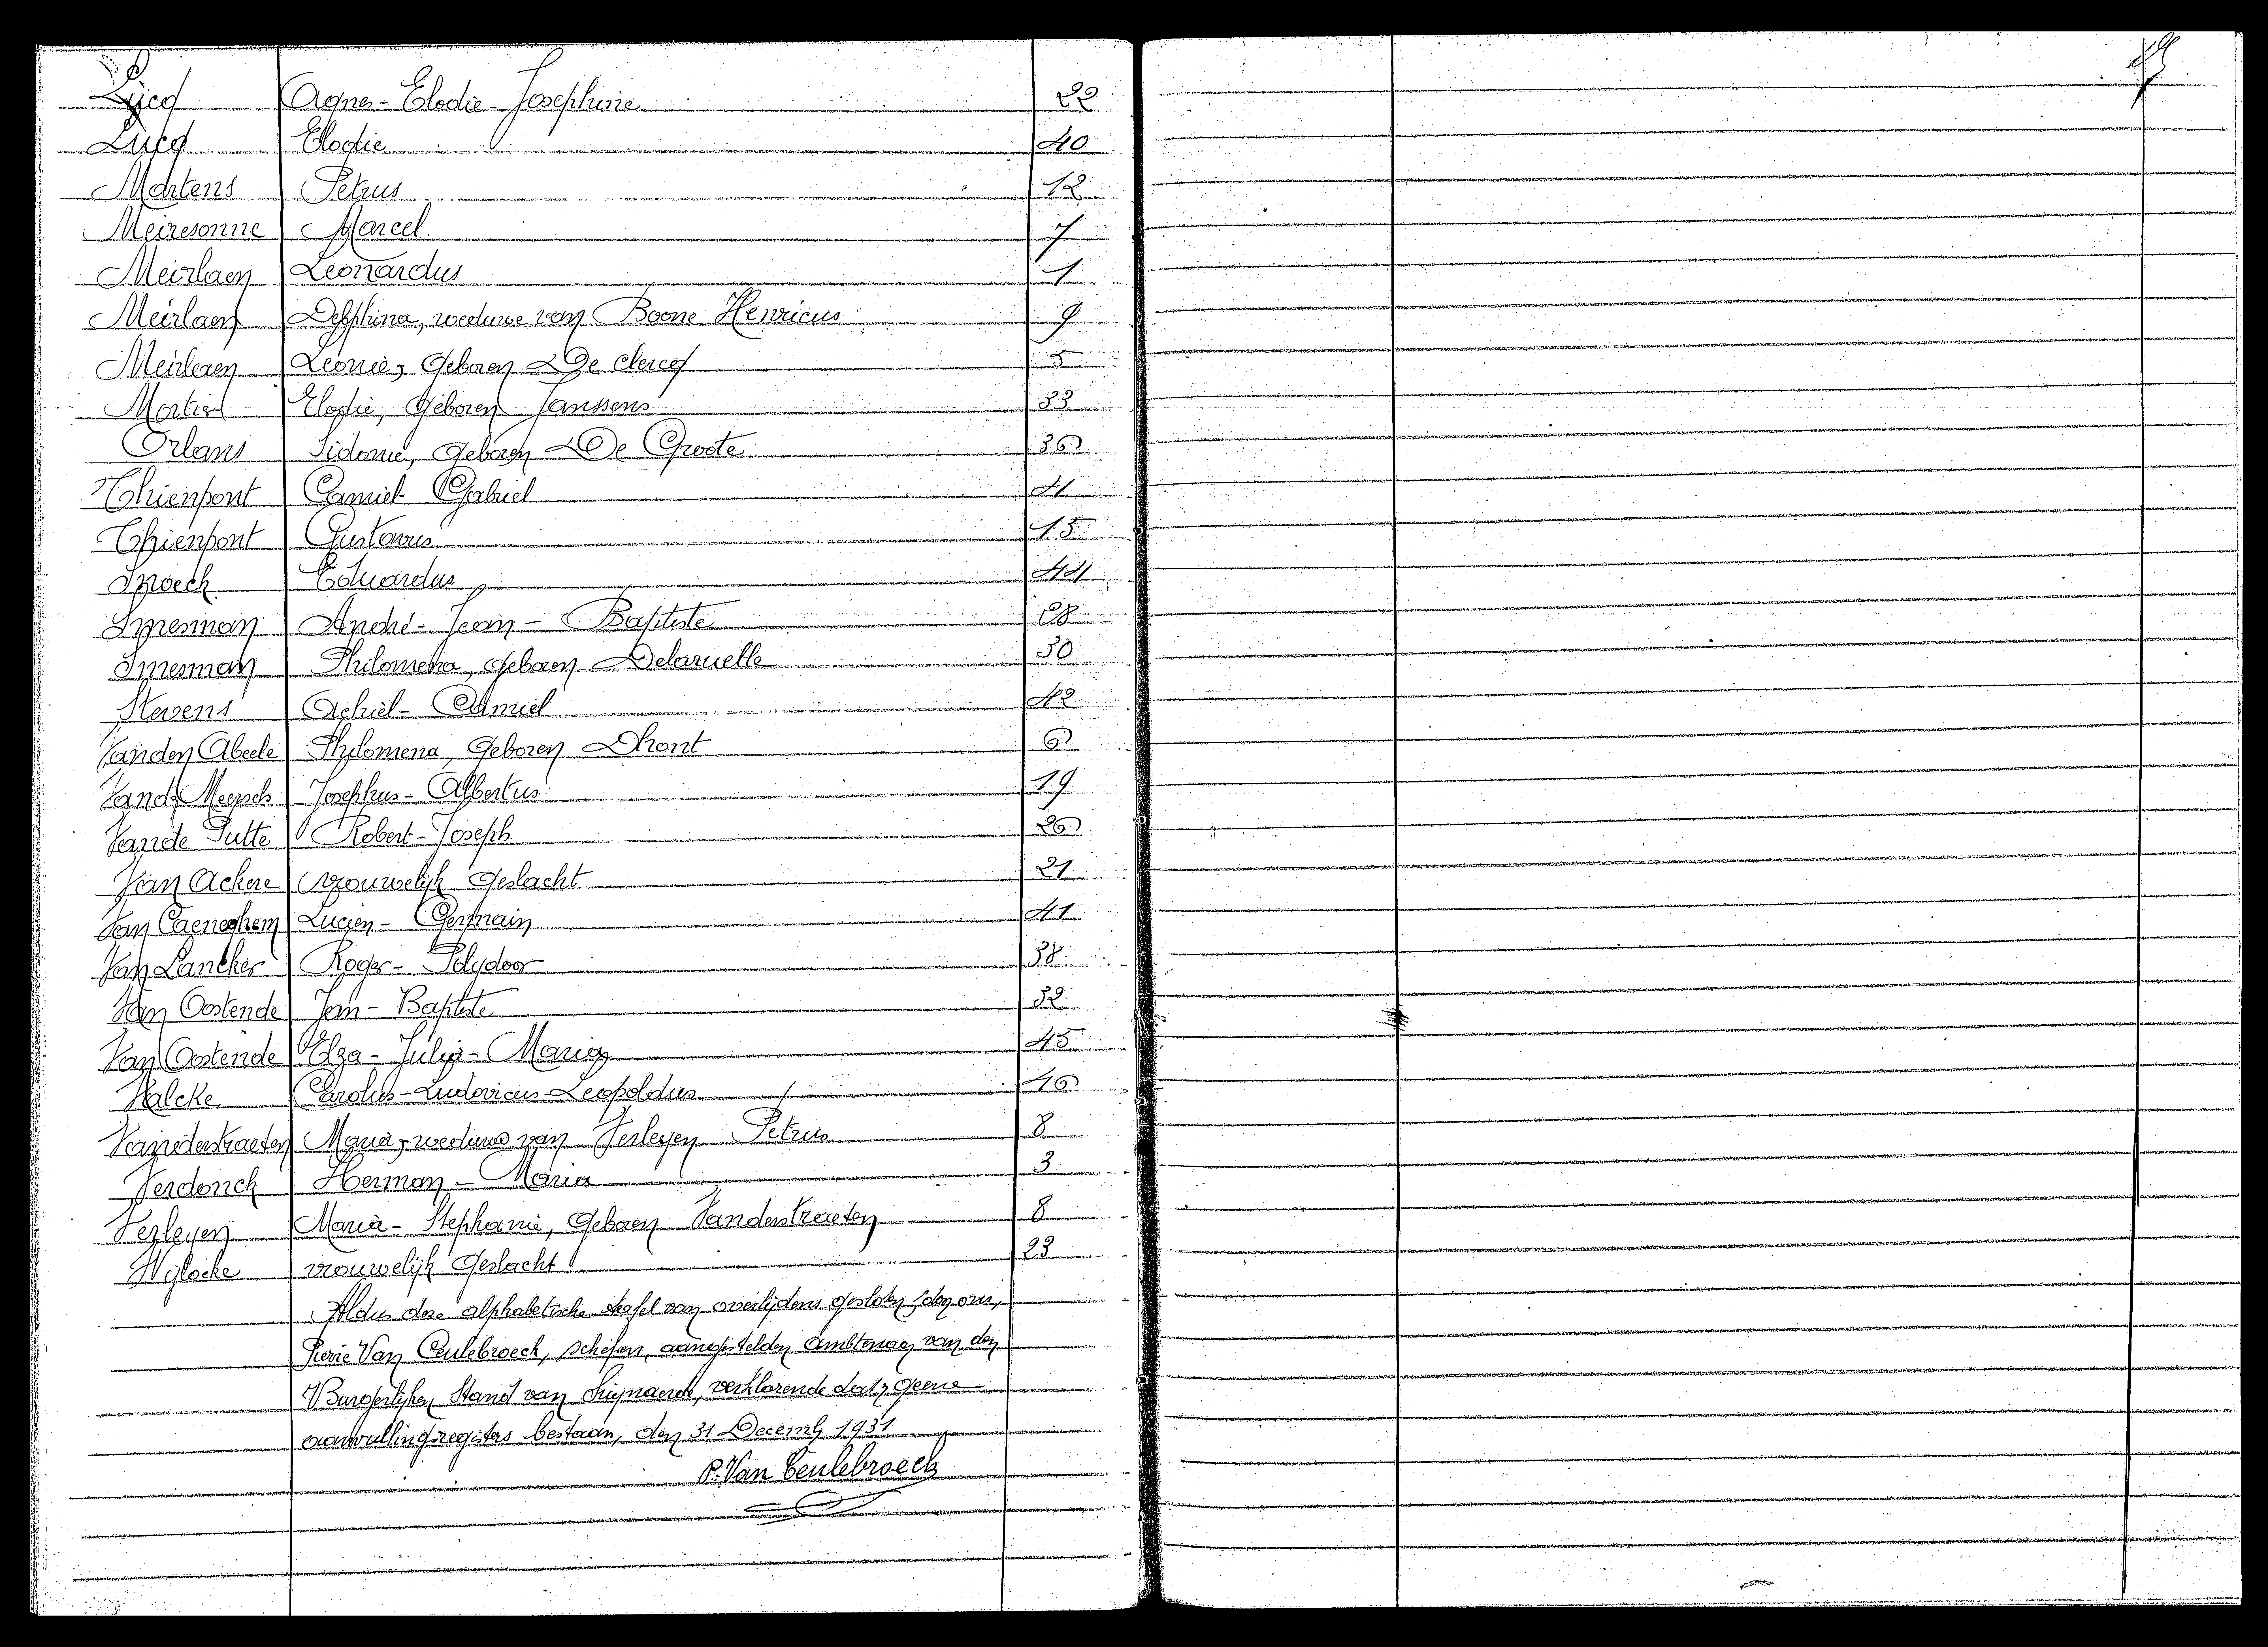 Lucq Agnes-Elodie-Josephine 22
Lucq Elodie 40
Martens Petrus 12
Meiresonne Marcel 7
Meirlaen Leonardus 1
Meirlaen Delphina, weduwe van Boone Henricus 9
Meirlaen Leonie, geboren De Clercq 5
Mortier Elodie, geboren Janssens 33
Orlans Sidonie, geboren De Groote 36
Thienpont Camiel Gabriel 41
Thienpont Gustavus 15
Snoeck Eduardus 44
Snesman André-Jean-Baptiste 28
Snesman Philomena, geboren Delaruelle 30
Stevens Achiel-Camiel 42
Vanden Abeele Philomena, geboren Dhont 6
Josephus-Albertus 19
Vande Putte Robert-Joseph 26
Van Ackere vrouwelijk geslacht 21
Van Caeneghem Lucien-Germain 41
Van Lancker Roger-Polydoor 38
Van Oostende Jan-Baptiste 32
Van Oostende Elza-Julia-Maria 45
Valcke Carolus-Ludovicus-Leopoldus 46
Vanderstraeten Maria, weduwe van Verleyen Petrus 8
Verdonck Herman-Maria 3
Verleyen Maria-Stephanie, geboren Vanderstraeten 8
Wylocke vrouwelijk geslacht 23
Aldus deze alphabetische tafel van overlijdens gesloten door ons,
Pierre Van Ceulebroeck, schepen, aangestelden ambtenaar van den
Burgerlijken Stand van Swijnaerde, verklarende dat geene
aanvullingsregisters bestaan, den 31 Decemb 1931
P. Van Ceulebroeck